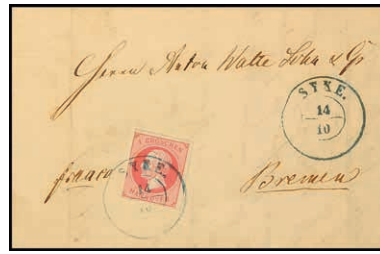 Herrn Anton Walte Sohn & Co
SYKE.
14
10
SYKE.
14
franco
Bremen